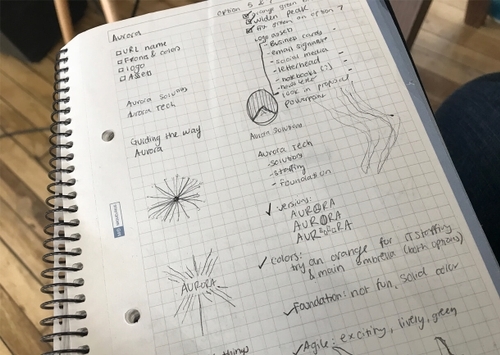 Aurora
URL name
Fonts & colors
Logo
Assets
Aurora Solutions
Aurora Tech
Guiding the way
Aurora
AURORA
option 5 & 7
orange green in
widen peak
try green in option 7
Logo assets
- Business cards
- email signature
- social media
- letterhead
- notebooks (?)
- look in proposal
powerpoint
Aurora Solutions
Aurora Tech
- Solutions
- Staffing
- Foundation
versions:
AURORA
AURORA
AURORA
colors:
try an orange for IT Staffing
& main umbrella (both options)
Foundation: not fun, solid color
Agile: exciting, lively, green
things